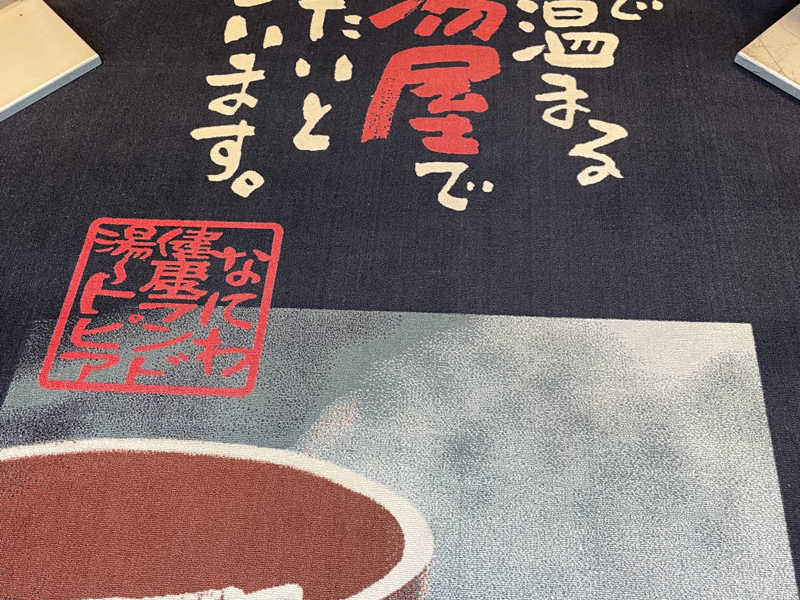 で
温まる
湯屋で
たいと
います。
なにわ
健康ランド
湯〜トピア